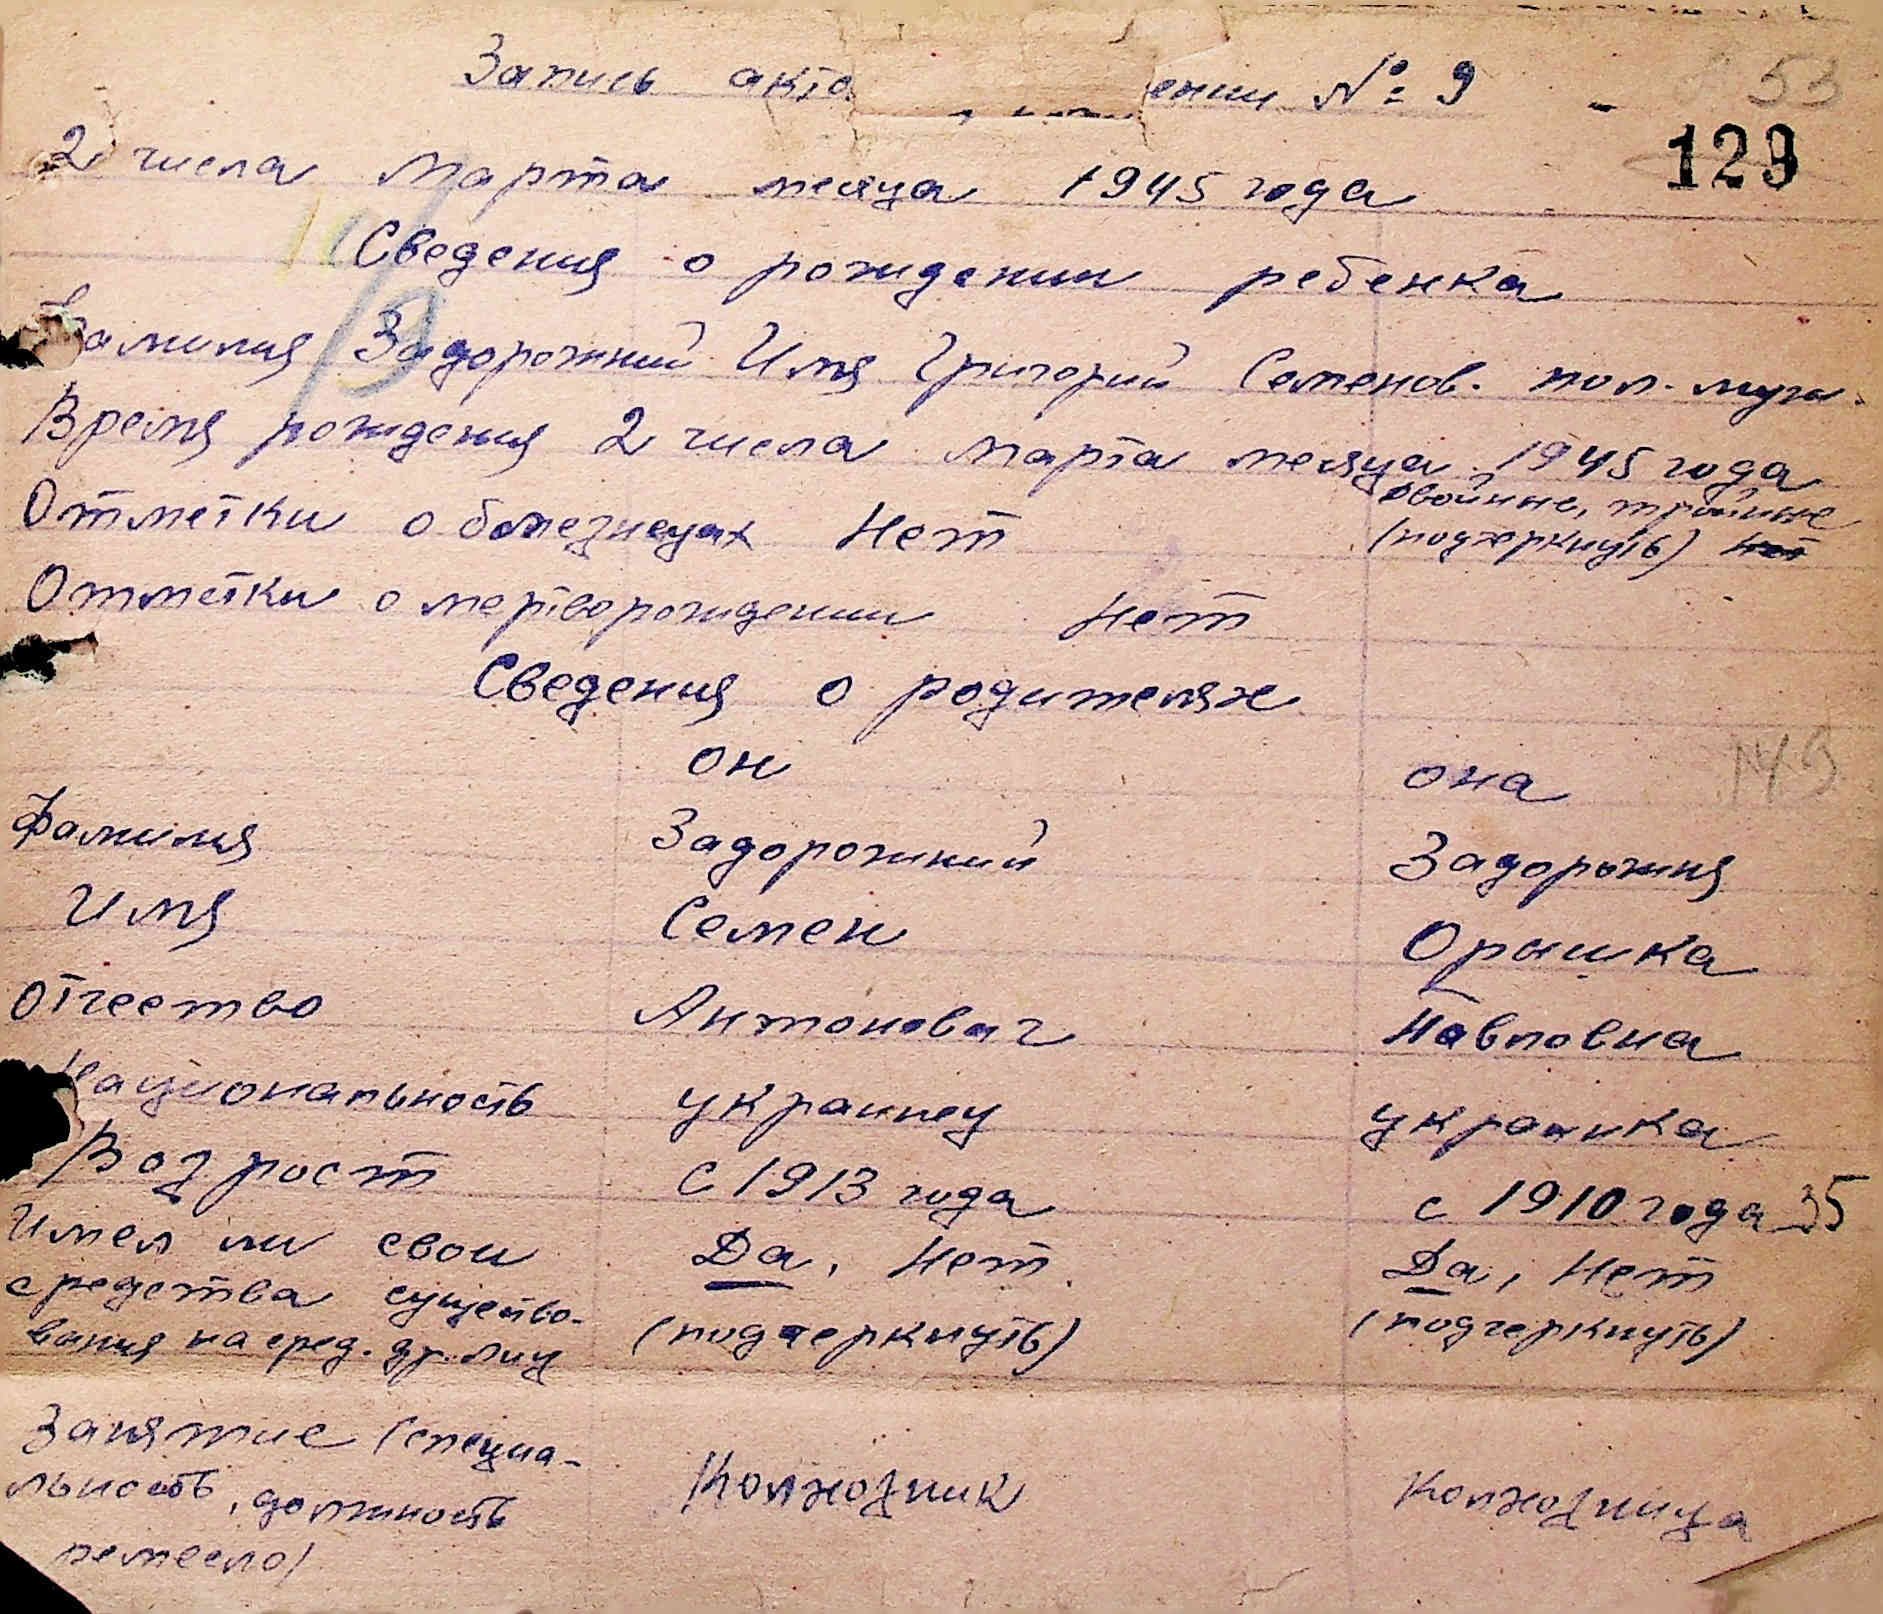 Запись акта ении № 9
53
129
2 числа марта месяца 1945 года
Сведения о рождении ребенка
Фамилия Задорожний Имя Григорий Семенов. пол. муж.
Время рождения 2 числа марта месяца 1945 года
Отметки о болезнецах Нет
двойнне, тройнне
(подчеркнуть) нет
Отметки о мертворождении Нет
Сведения о родителях
он она
№9
Фамилия Задорожний Задорожня
Имя Семен Орышка
Отчество Антонович Павловна
Национальность украинец украинка
Возрост с 1913 года с 1910 года 35
Имел ли свои Да, Нет Да, Нет
средства существо- (подчеркнуть) (подчеркнуть)
вания на сред. др. лиц
Занятие (специа-
льность, должность Колхозник Колхозница
ремесло)